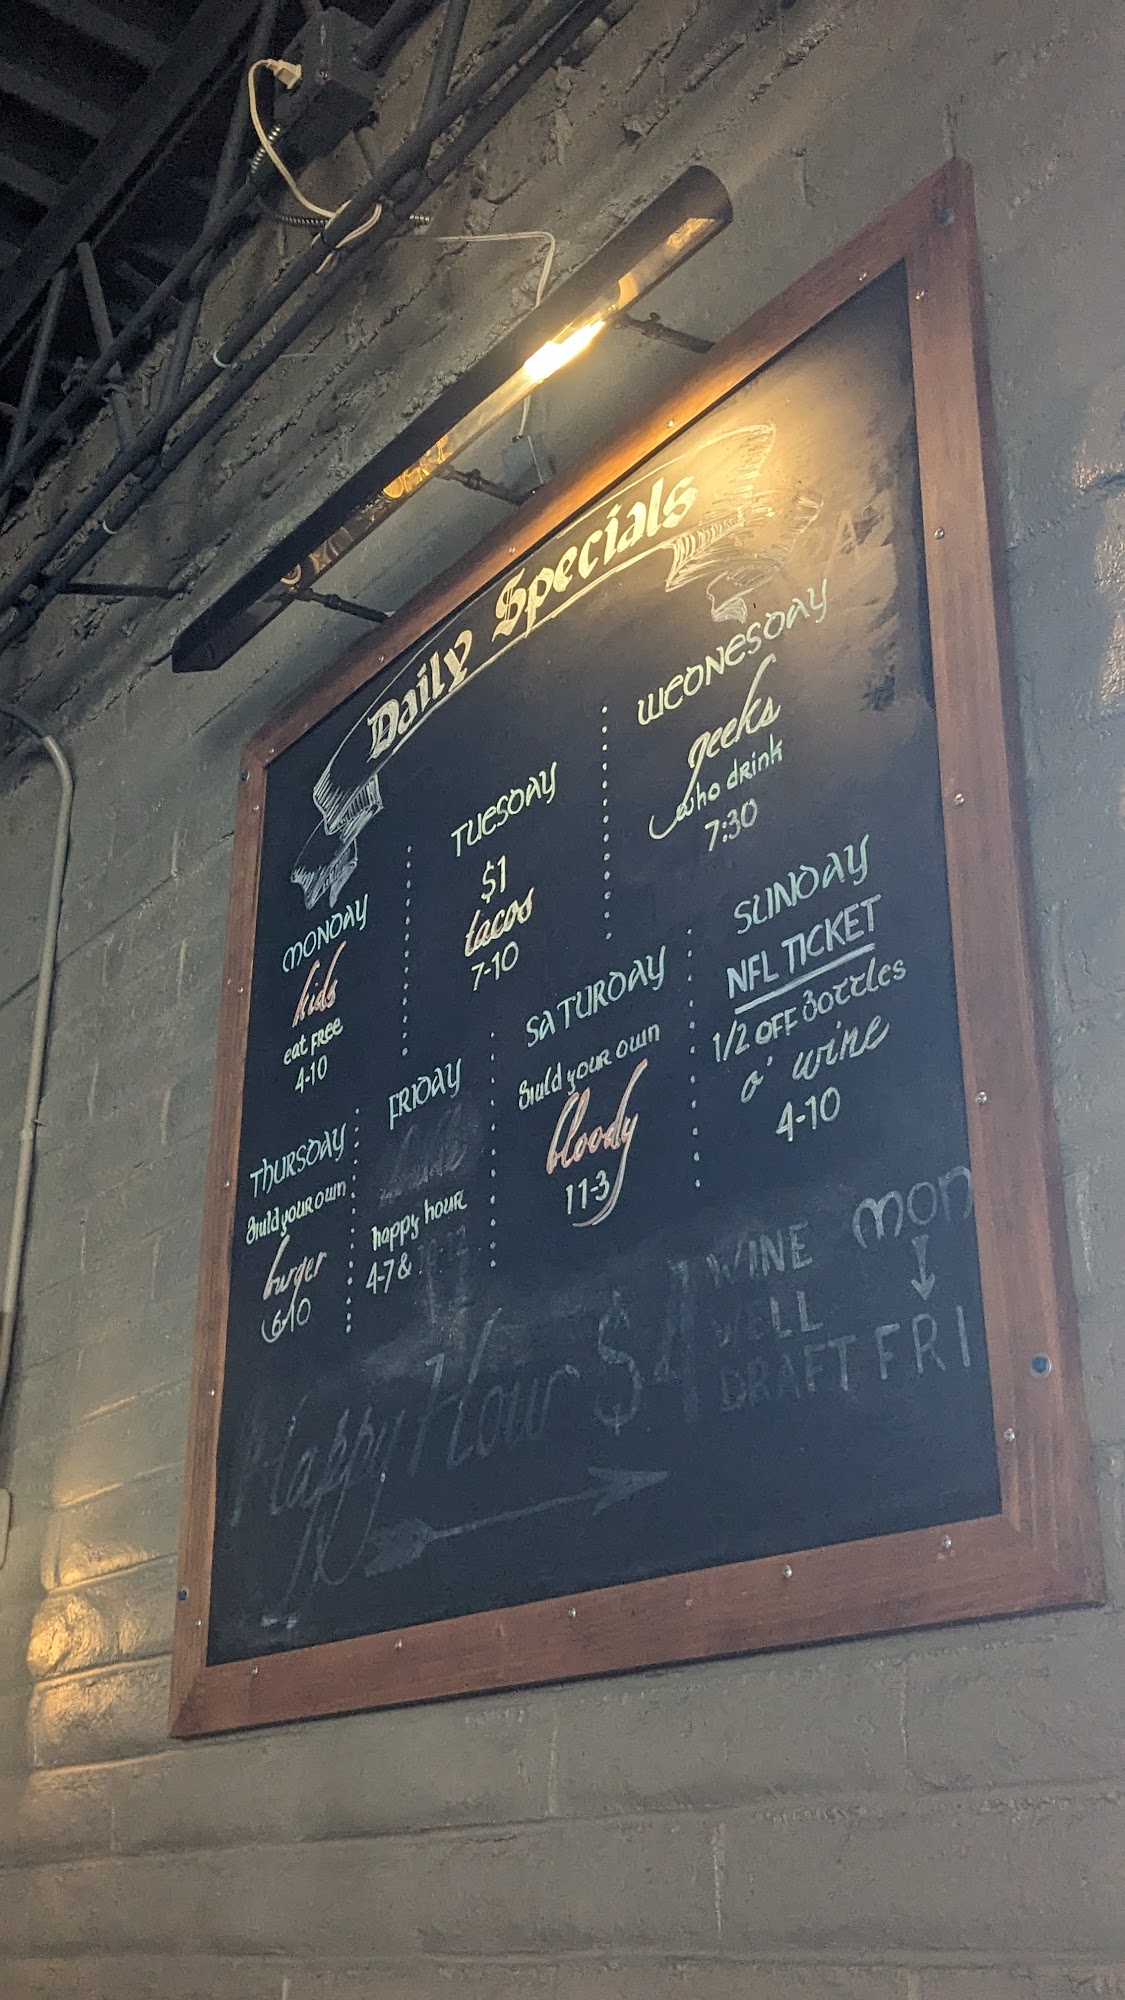 Daily Specials
MONDAY
kids
eat FREE
4-10
TUESDAY
$1
tacos
7-10
WEDNESDAY
geeks
who drink
7:30
THURSDAY
Build your own
burger
6-10
FRIDAY
happy hour
4-7 &
SATURDAY
Build your own
bloody
11-3
SUNDAY
NFL TICKET
1/2 OFF Bottles
o' wine
4-10
Happy Hour $4
WINE
WELL
DRAFT
MON
FRI